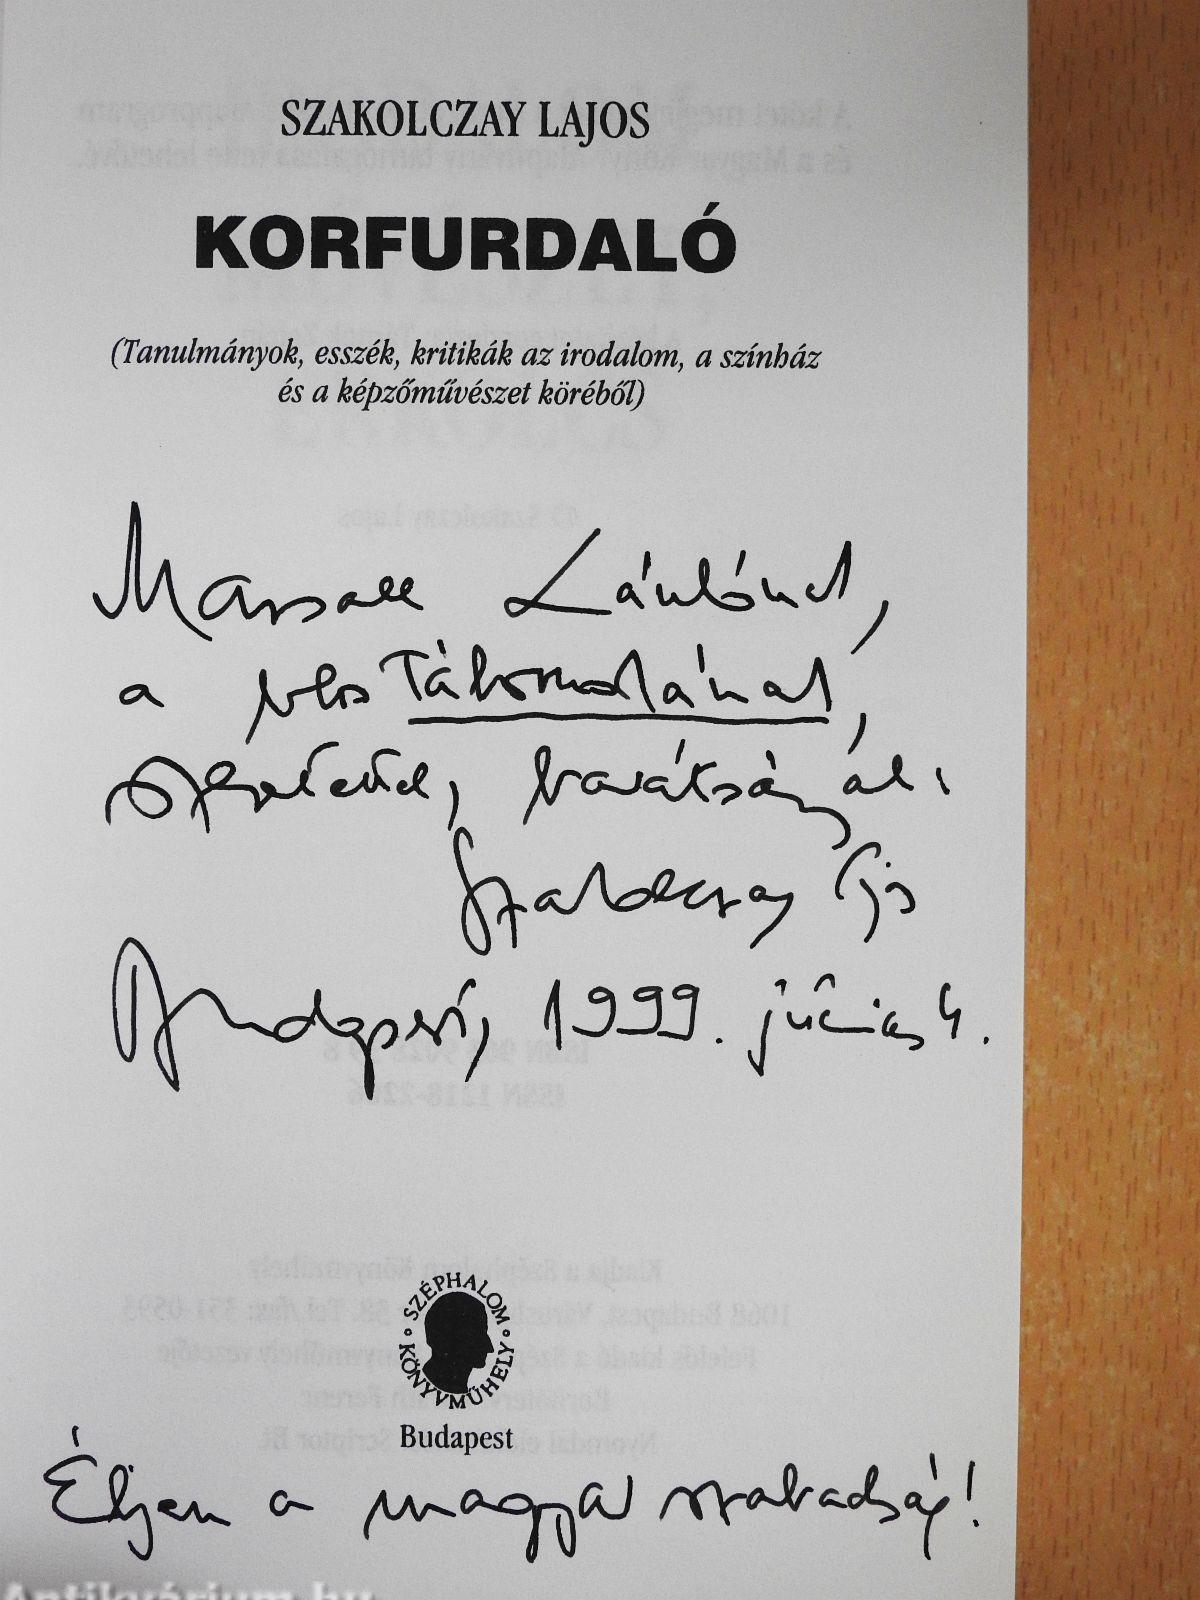 SZAKOLCZAY LAJOS
KORFURDALÓ
(Tanulmányok, esszék, kritikák az irodalom, a színház
és a képzőművészet köréből)
Marsall Lászlónak,
a
szeretettel, barátsággal:
Szakolczay Lajos
Budapest, 1999. június 4.
SZÉPHALOM KÖNYVMŰHELY
Budapest
Éljen a magyar szabadság!
Antikvárium.hu